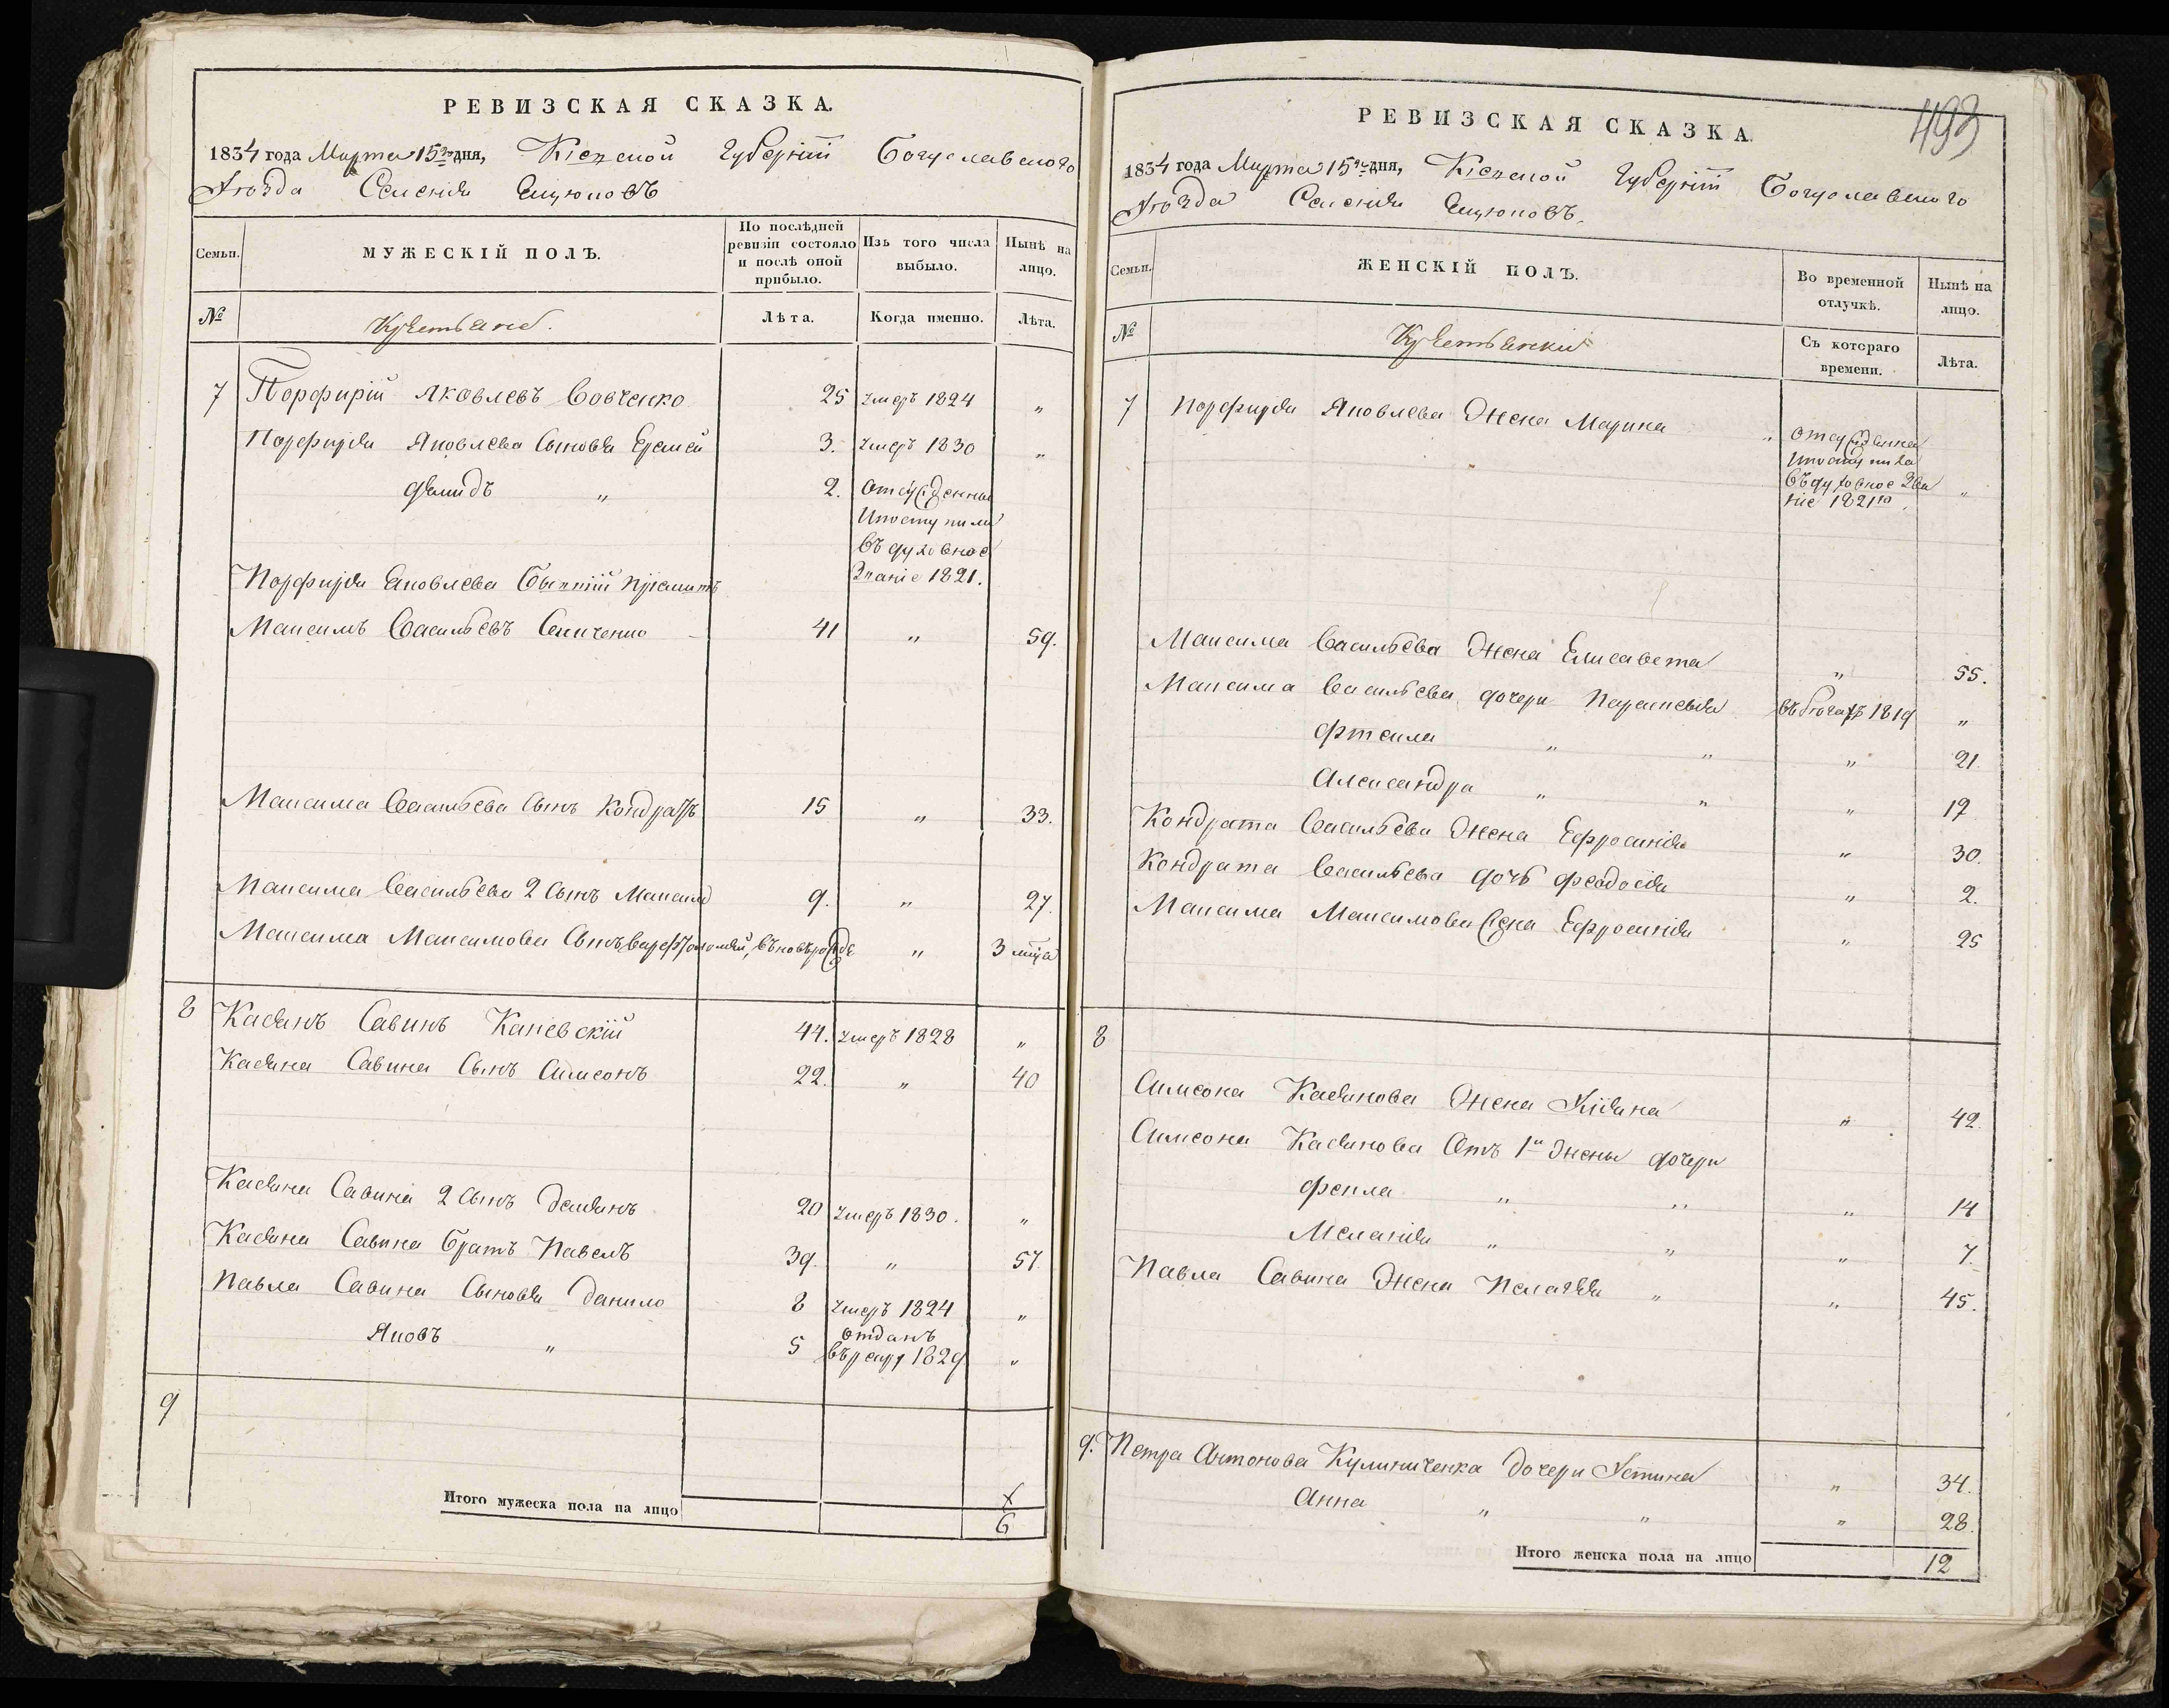 РЕВИЗСКАЯ СКАЗКА.
1834 года Марта 15го дня, Кіевской Губерніи Богуславскаго
Уѣзда Селенія
Семьи.
МУЖЕСКІЙ ПОЛЪ.
По послѣдней ревизіи состояло и послѣ оной прибыло.
Изъ того числа выбыло.
Нынѣ на лицо.
№
Крестьяне.
Лѣта.
Когда именно.
Лѣта.
7 Порфирій Яковлевъ Вовченко 25 умеръ 1824 "
Порфирія Яковлева Сыновья Еремей 3. умеръ 1830 "
" 2. отсужденны
Ипоступили
въ духовное
Званіе 1821.
Порфирія Яковлева бывшій пріемитъ
Максимъ Васильевъ 41 " 59.
Максима Васильева Сынъ Кондратъ 15 " 33.
Максима Васильева 2 Сынъ Максимъ 9. " 27.
Максима Максимова Сынъ Варфоломей, вновьрожде " 3 мца
8 Касіянъ Савинъ Каневскій 44. умеръ 1828 "
Касіяна Савина Сынъ Симеонъ 22. " 40
Касіяна Савина 2 Сынъ Демянъ 20 умеръ 1830. "
Касіяна Савина братъ Павелъ 39. " 57.
Павла Савина Сыновья Данило 8 умеръ 1824 "
Яковъ " 5 отданъ
врекру 1829 "
9
Итого мужеска пола на лицо 6
493
РЕВИЗСКАЯ СКАЗКА.
1834 года Марта 15го дня, Кіевской Губерніи Богуславскаго
Уѣзда Селенія
Семьи.
ЖЕНСКІЙ ПОЛЪ.
Во временной отлучкѣ.
Нынѣ на лицо.
№
Крестьянскій
Съ котораго времени.
Лѣта.
7 Порфирія Яковлева Жена Марина " отсужденна
Ипоступила
въ духовное Зва
ніе 1821го. "
Максима Васильева Жена Елисавета " 55.
Максима Васильева дочери Параскевія въ бѣгахъ 1819 "
" " " 21.
Александра " " " 17
Кондрата Васильева Жена Ефросинія " 30.
Кондрата Васильева дочь Феодосія " 2.
Максима Максимова Жена Ефросинія " 25
8
Симеона Касіянова Жена Уліяна " 42.
Симеона Касіянова Отъ 1й Жены дочери
Фекла " " " 14
Меланія " " " 7.
Павла Савина Жена Пелагія " " 45.
9. Петра Антонова Кулиниченка дочери Устина " 34.
Анна " " " 28.
Итого женска пола на лицо 12